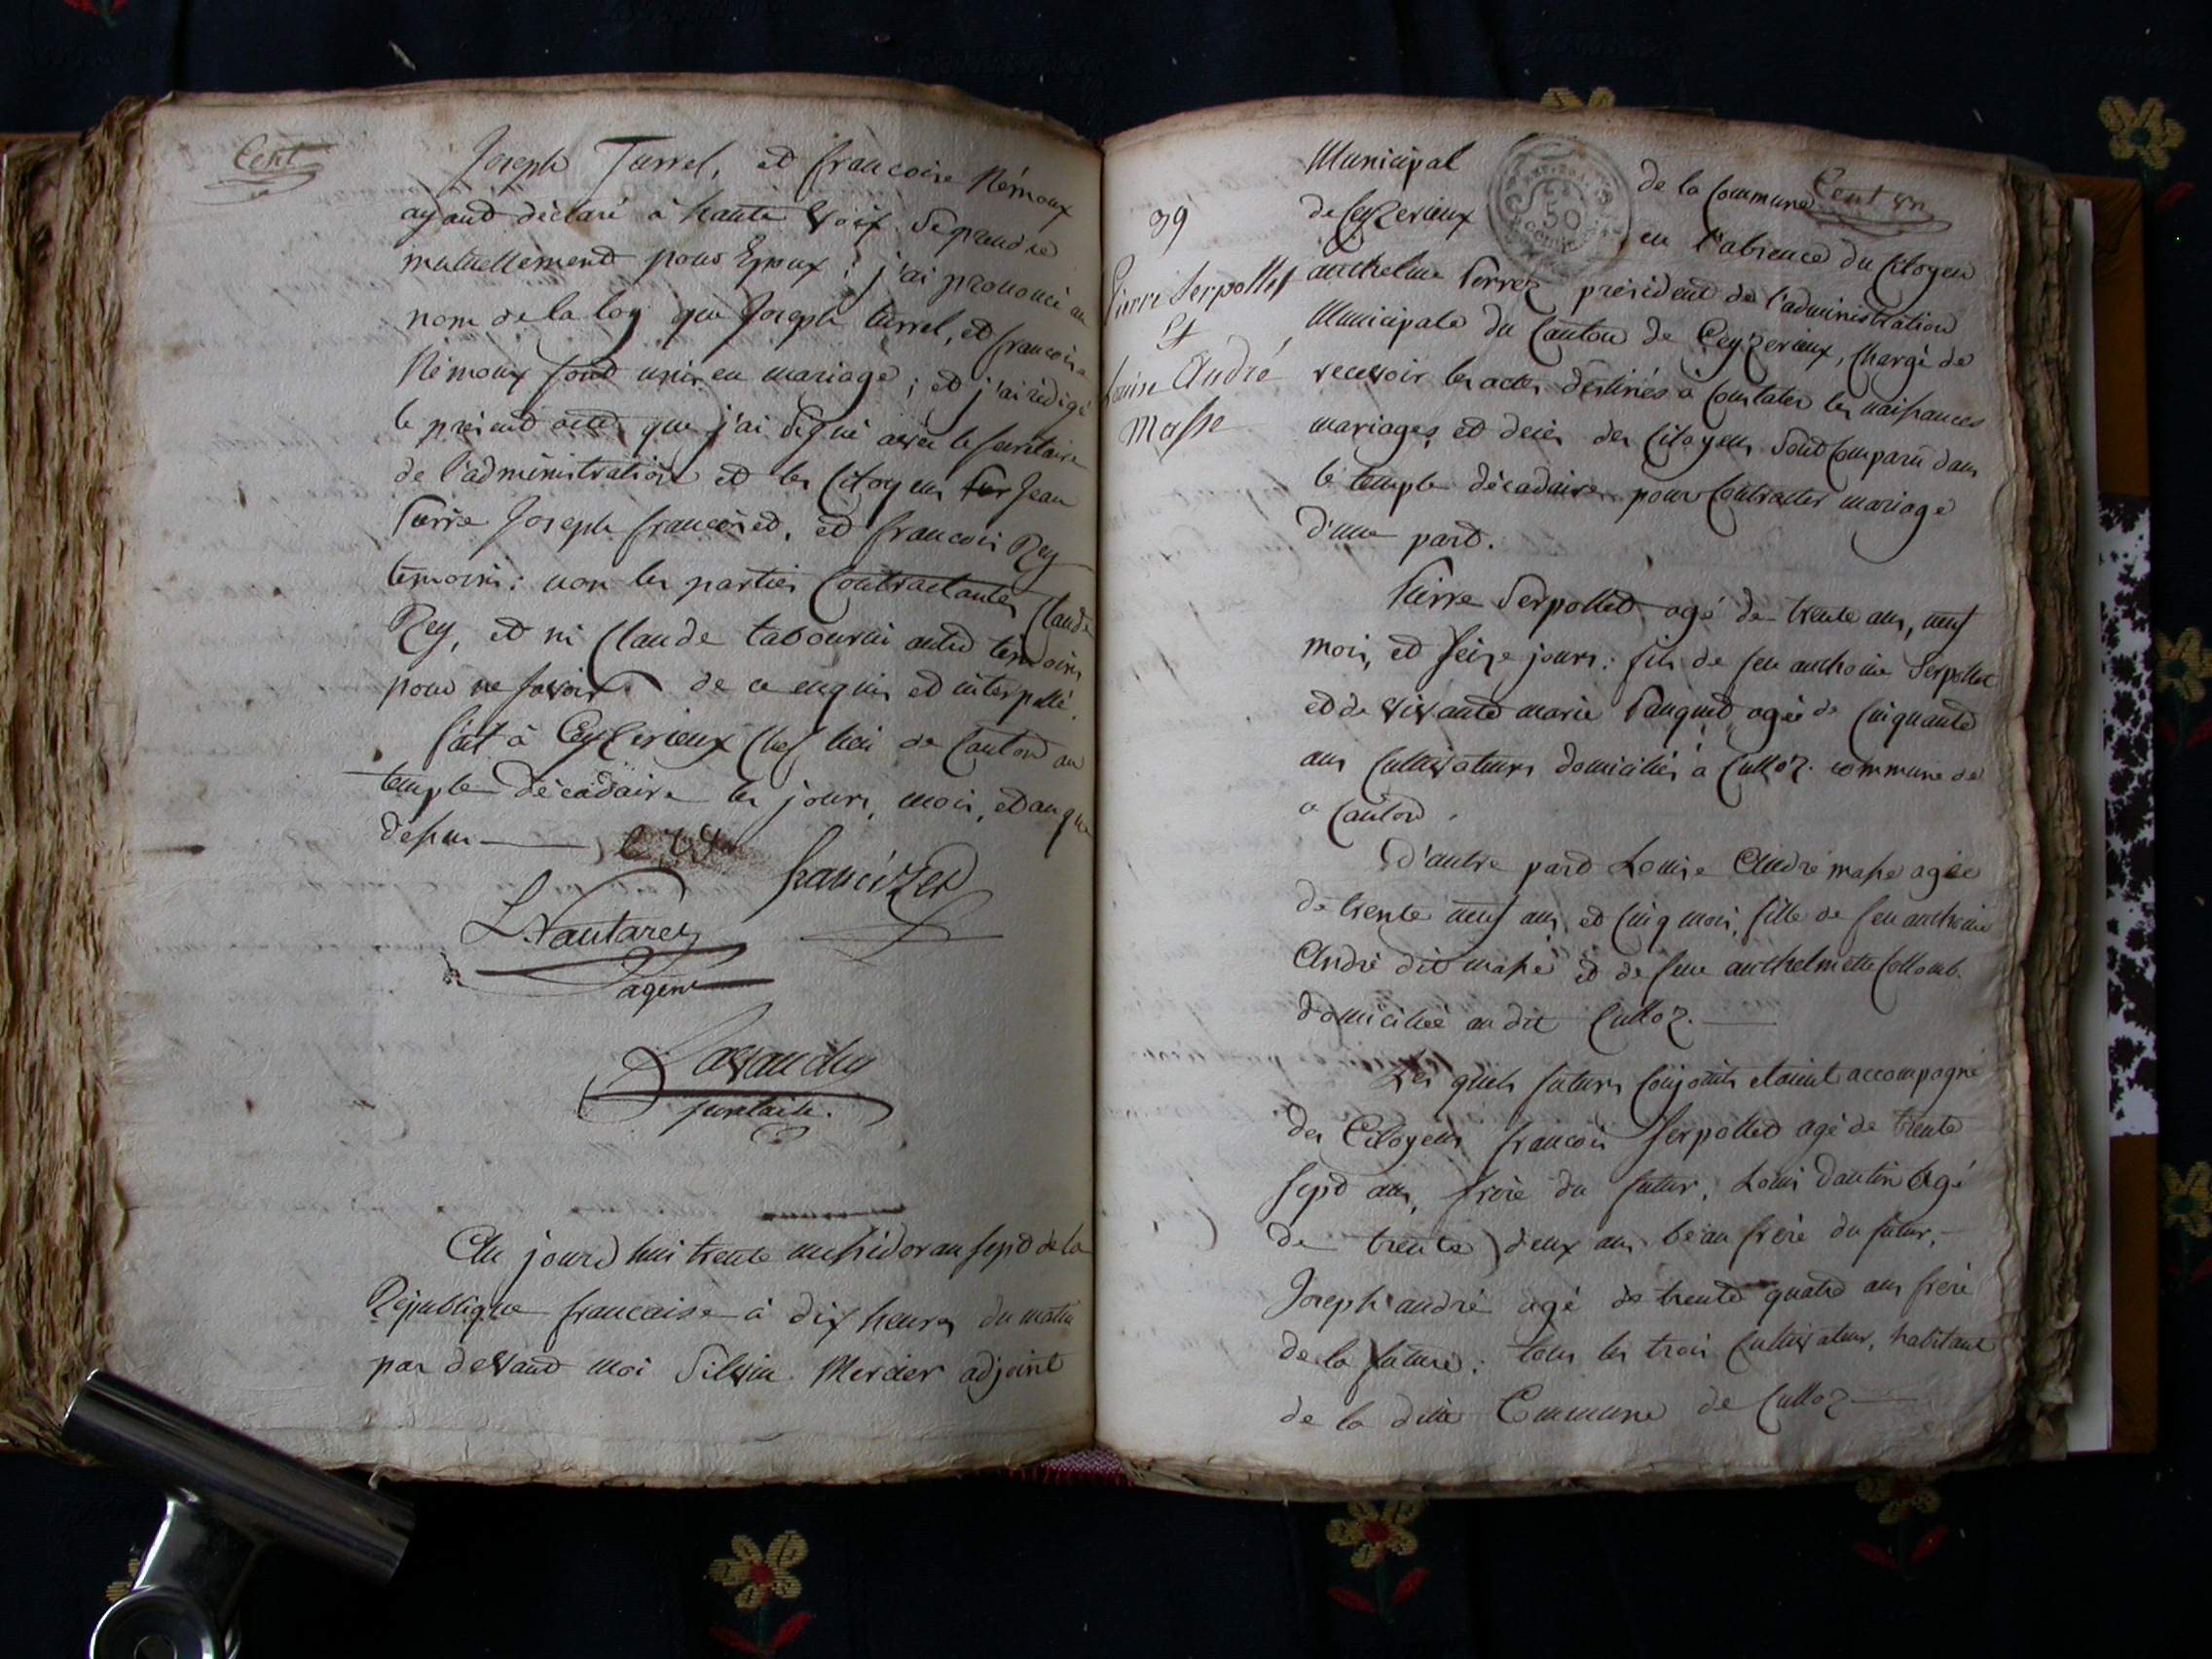 Cent
Joseph Turrel, et francoise Rémoux
ayant déclaré à haute voix se prendre
mutuellement pour Epoux ; j'ai prononcé au
nom de la loy que Joseph turrel, et francoise
Rémoux sont unis en mariage ; et j'ai rédigé
le présent acte que j'ai signé avec le secrétaire
de l'administration et les Citoyens Jean
Pierre Joseph francoised, et francois Rey
témoins : non les parties Contractantes Claude
Rey, et ni Claude tabouret autre témoins
pour ne savoir de ce enquis et interpellé.
fait à Ceyzerieux Chef lieu de Canton au
temple décadaire les jours, mois, et an que
dessus
francizet
L. Vautaret
agent
Lavanchy
secretaire.
Au jourd'hui trente messidor an sept de la
République francaise à dix heures du matin
par devant moi Silvin Mercier adjoint
Cent un
Municipal de la Commune
de Ceyzerieux, en l'absence du Citoyen
anthelme Perret président de l'administration
Municipale du Canton de Ceyzerieux, Chargé de
recevoir les actes destinés à Constater les naissances
mariages, et decès des Citoyens sont Comparu dans
le temple décadaire pour Contracter mariage
d'une part.
99
Pierre Serpollet
Et
Louise André
Masse
50
Pierre Serpollet agé de trente ans, neuf
mois, et seize jours : fils de feu anthoine Serpollet
et de vivante marie Panquet agée de Cinquante
ans Cultivateurs domiciliés à Culloz commune de
ce Canton.
D'autre part Louise André masse agée
de trente neuf ans et Cinq mois, fille de feu anthoine
André dit masse et de feue anthelmette Collomb.
domiciliée au dit Culloz.
Les quels futurs Conjoints etaient accompagné
des Citoyens francois Serpollet agé de trente
sept ans, frère du futur, Louis Dantin Agé
de trente deux ans beau frère du futur,
Joseph andré agé de trente quatre ans frère
de la future : tous les trois Cultivateur, habitant
de la dite Commune de Culloz